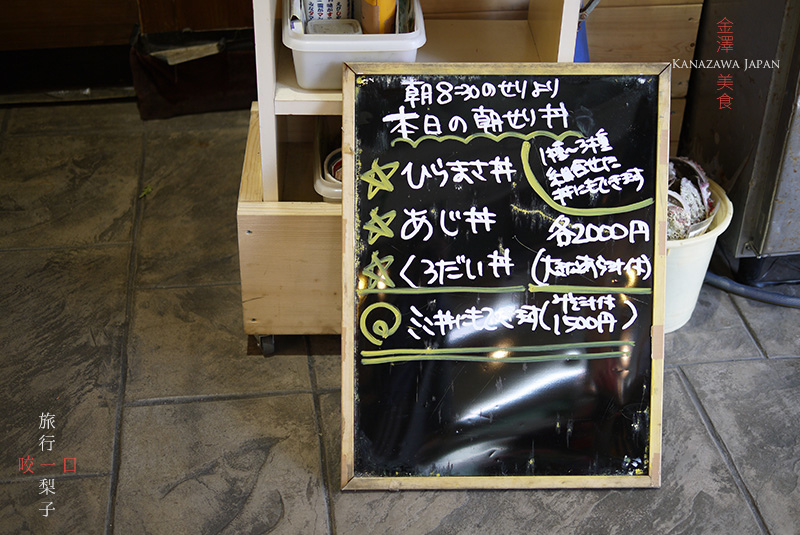 金澤美食
KANAZAWA JAPAN
朝8:30のせりより
本日の朝せり丼
☆ひらまさ丼
1種~3種
組合せた
丼にもできます
☆あじ丼
各2000円
☆くろだい丼
◎ミニ丼にもできます(みそ汁付
1500円)
旅行
咬一口
梨子